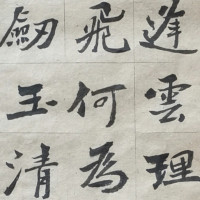 逢雲理
飛何為
劒玉清